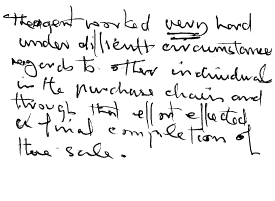 The agent worked very hard
under difficult circumstances
regards to other individual
in the purchase chain and
through that effort effected
a final completion of
the sale.